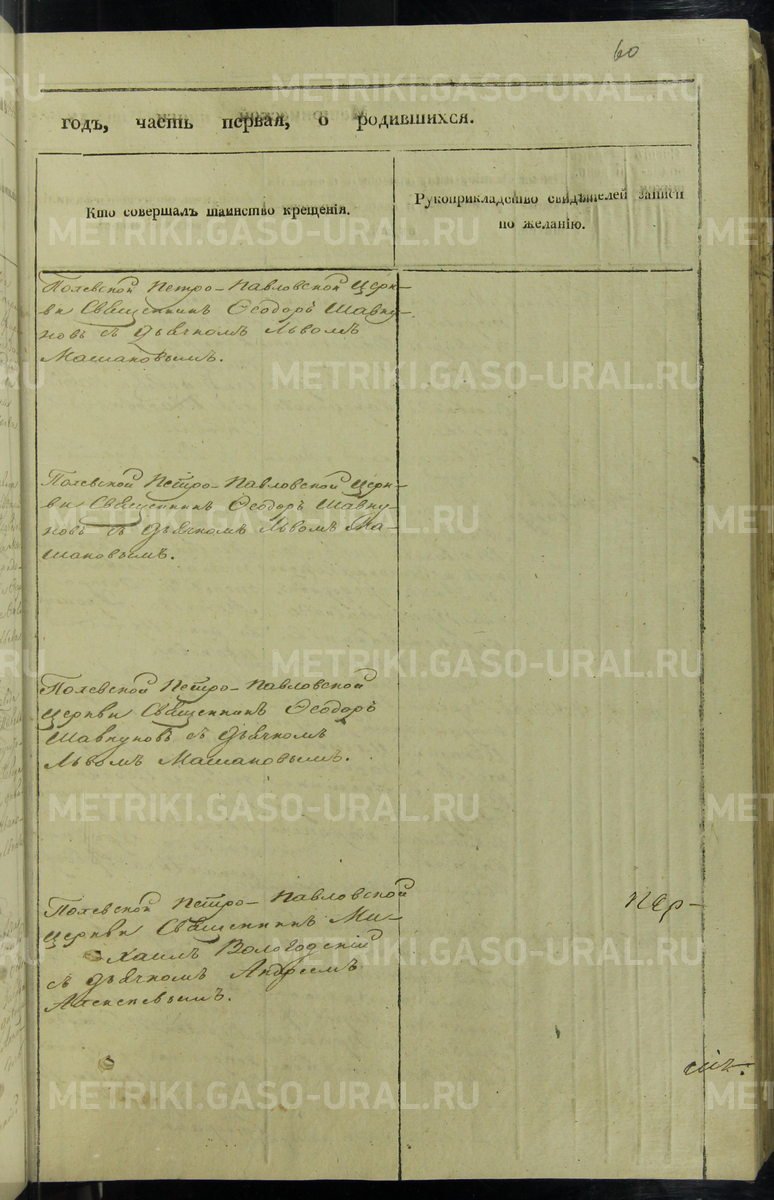 60
годъ, часть первая, о родившихся.
Кто совершалъ таинство крещенія.
Рукоприкладство свидѣтелей записи
по желанію.
Полевской Петро-Павловской Церк-
ви Священникъ Ѳеодоръ Шавку-
новъ съ дьячкомъ Львомъ
Машановымъ.
Полевской Петро-Павловской Церк-
ви Священникъ Ѳеодоръ Шавку-
новъ съ дьячкомъ Львомъ Ма-
шановымъ.
Полевской Петро-Павловской
Церкви Священникъ Ѳеодоръ
Шавкуновъ съ дьячкомъ
Львомъ Машановымъ.
Полевской Петро-Павловской
Церкви Священникъ Ми-
хаилъ Вологодскій
съ дьячкомъ Андреемъ
Алексеевымъ.
Пер-
METRIKI.GASO-URAL.RU